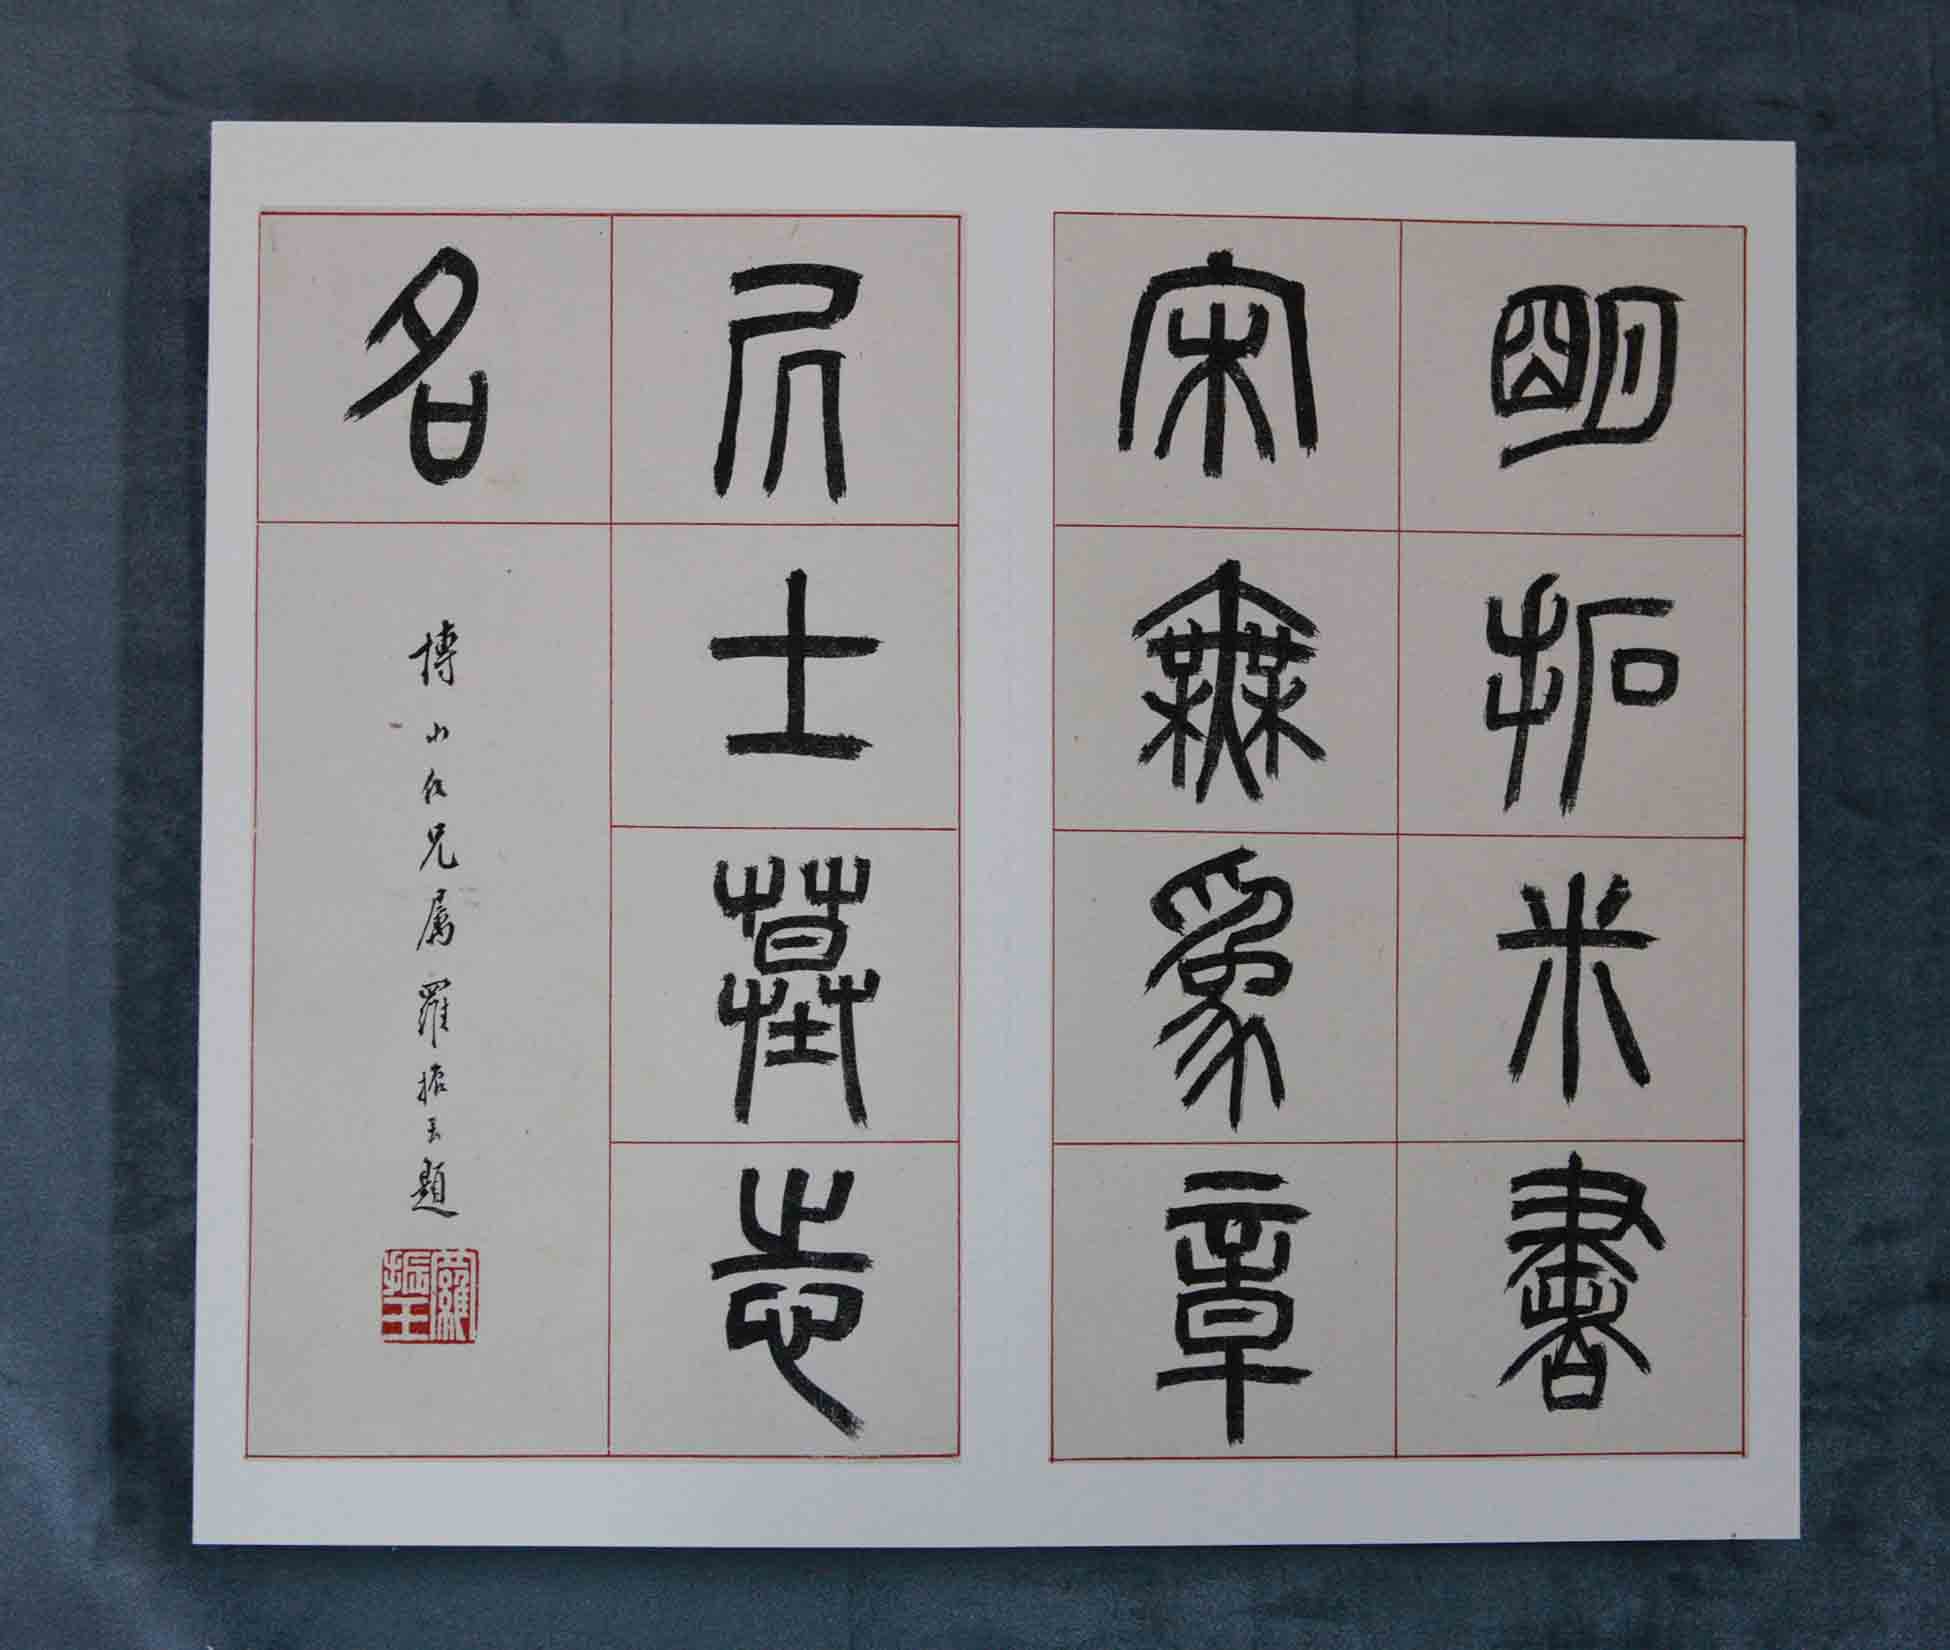 明拓米書
宋無爲章
凥士墓志
名
博山仁兄屬羅振玉題
羅振玉